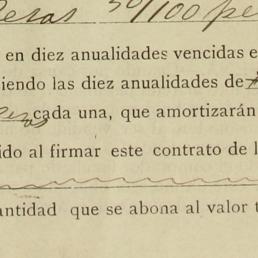 esas 50/100 pe
en diez anualidades vencidas e
iendo las diez anualidades de
cada una, que amortizarán
ido al firmar este contrato de l
antidad que se abona al valor t